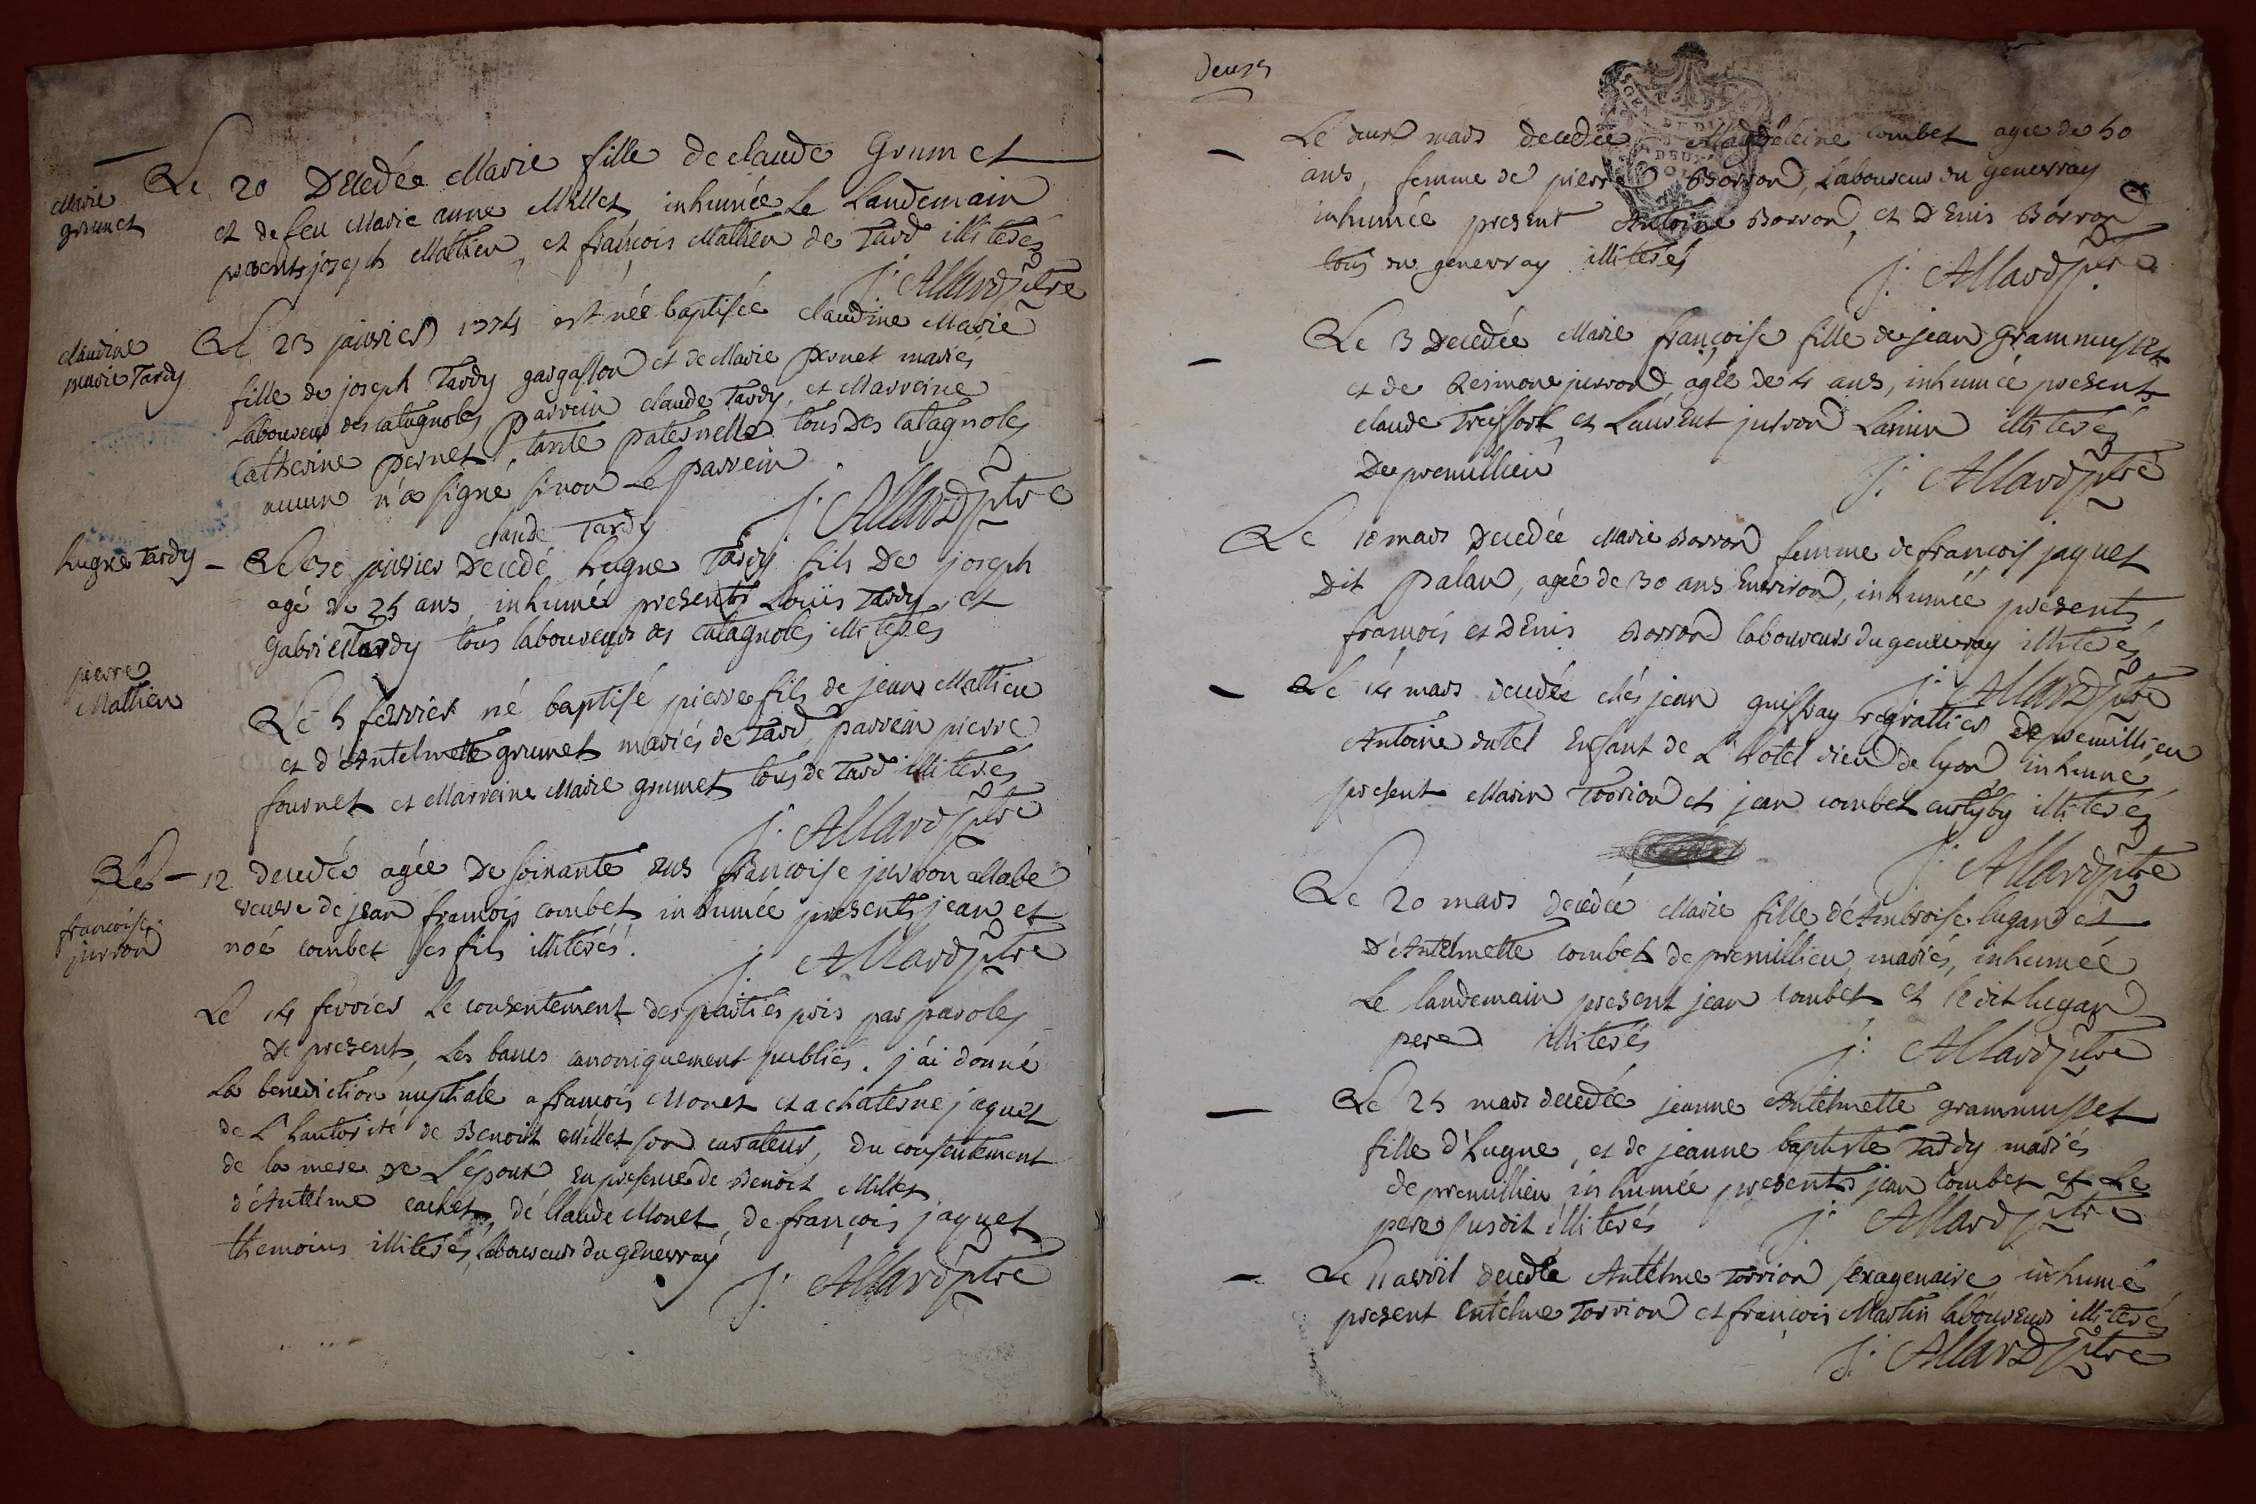 Marie
grumet
Le 20 Decedée Marie fille de claude Grumet
et de feu Marie anne Millet inhumée Le Landemain
presents joseph Mathieu, et françois Mathieu de Tard illiterés
j. Allard ptre
claudine
marie Tardy
Le 23 janvier 1774 est née baptisée claudine Marie
fille de joseph Tardy gargasson et de Marie pernet mariés
Laboureur des catagnoles parrein claude Tardy, et Marreine
Catherine pernet, tante paternelle tous Des Catagnoles
aucun n'a signé sinon Le parrein
claude Tardy
j. Allard ptre
hugue Tardy
Le 30 janvier Decedé hugue Tardy fils De joseph
agé de 25 ans, inhumé presents Loüis Tardy, et
Gabriel Tardy tous laboureurs des catagnoles illiterés
pierre
Mathieu
Le 5 fevrier né baptisé pierre fils de jean Mathieu
et d'Antelmette grumet mariés de Tard, parrein pierre
fournet et Marreine Marie grumet tous de Tard illiterés
j. Allard ptre
francoise
jurron
Le 12 decedée agée De soixante ans francoise jurron
veuve de jean francois combet, inhumée presents jean et
noé combet ses fils illiterés.
j. Allard ptre
Le 14 fevrier Le consentement des parties pris par paroles
De present, Les bancs canoniquement publiés. j'ai donné
La benediction nuptiale a francois Monet et a jaquet
de L'hautorité de Benoist Millet son curateur, Du consentement
de la mere de L'epoux en presence de Benoit Millet
d'Antelme cachet, de Claude Monet, de françois jaquet
themoins illiterés, Laboureurs du genevray
j. Allard ptre
Deux
Le deux mars decedée Magdeleine combet agée de 50
ans, femme de pierre Borron, Laboureur du genevray
inhumée present Antoine Borron, et Denis Borron
tous du genevray illiterés
j. Allard ptre
Le 3 Decedée Marie françoise fille de jean grammusset
et de jurron agée de 4 ans, inhumée presents
claude Treffort et Laurent jurron illiterés
De premillieu
j. Allard ptre
Le 10 mars Decedée Marie Borron femme de francois jaquet
Dit palan, agée de 30 ans Environ, inhumée presents
francois et Denis Borron laboureurs du genevray illiterés
j. Allard ptre
Le 14 mars decedée chés jean guiffray regrattier de premillieu
Antoine dutel Enfant de L'hotel dieu de lyon, inhumé
present Marin Torrion et jean combet illiterés
j. Allard ptre
Le 20 mars decedée Marie fille d'Ambroise lugan et
D'Antelmette combet de premillieu mariés, inhumée
Le landemain present jean combet et ledit lugan
pere illiterés
j. Allard ptre
Le 25 mars decedée jeanne Antelmette grammusset
fille d'hugue, et de jeanne baptiste Tardy mariés
de premillieu inhumée presents jean combet et Le
pere susdit illiterés
j. Allard ptre
Le 11 avril decedée Antelme Torrion sexagenaire inhumé
present Entelme Torrion et françois Martin laboureurs illiterés
j. Allard ptre